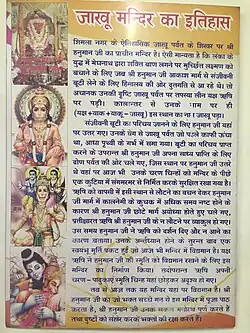 जाखू मन्दिर का इतिहास
शिमला नगर के ऐतिहासिक जाखू पर्वत के शिखर पर श्री
हनुमान जी का प्राचीन मन्दिर है। ऐसी मान्यता है कि लंका के
युद्ध में मेघनाथ द्वारा शक्ति बाण लगने पर मूर्च्छित लक्ष्मण को
बचाने के लिए जब श्री हनुमान जी आकाश मार्ग से संजीवनी
बूटी लेने के लिए हिमालय की ओर द्रुतगति से जा रहे थे। तो
अचानक उनकी दृष्टि जाखू पर्वत पर तपस्या लीन यक्ष ऋषि
पर पड़ी। कालान्तर से उनके नाम पर ही
(यक्ष+याक+याकू–जाखू) इस स्थान का नाम जाखू पड़ा।
संजीवनी बूटी का परिचय जानने के लिए हनुमान जी यहां
पर उतर गए। उनके वेग से जाखू पर्वत जो पहले काफी ऊंचा
था, आधा पृथ्वी के गर्भ में समा गया। बूटी का परिचय प्राप्त
करने के उपरान्त श्री हनुमान जी अपना लक्ष्य प्राप्ति के लिए
द्रोण पर्वत की ओर चले गए, जिस स्थान पर हनुमान जी उतरे
थे वहां पर आज भी उनके चरण चिन्हों को मन्दिर के पीछे
एक कुटिया में संगमरमर से निर्मित करके सुरक्षित रखा गया है।
ऋषि को वापसी में इसी स्थान से लौटने का वचन देकर हनुमान
जी मार्ग में कालनेमी के कुचक्र में अधिक समय नष्ट होने के
कारण श्री हनुमान जी छोटे मार्ग अयोध्या होते हुए चले गए,
परिणामतः ऋषि श्री हनुमान जी के न लौटने पर व्याकुल हो गए।
उस समय हनुमान जी ने ऋषि को दर्शन दिए और न आने का
कारण बताया। उनके अन्तर्ध्यान होने के तुरन्त बाद एक
स्वयंभू मूर्ति प्रकट हुई जो आज भी मन्दिर में विद्यमान है। यक्ष
ऋषि ने हनुमान जी की स्मृति को विद्यमान रखने के लिए इस
मन्दिर का निर्माण किया।
तब से आज तक यह मन्दिर यहां पर विद्यमान है। श्री
हनुमान जी का जो भक्त सच्चे मन से इस मन्दिर में पूजा पाठ
करता है, श्री हनुमान जी उनका सकल मनोरथ पूर्ण करते है
तथा दुष्टों को संहार करके भक्तों की रक्षा करते है।